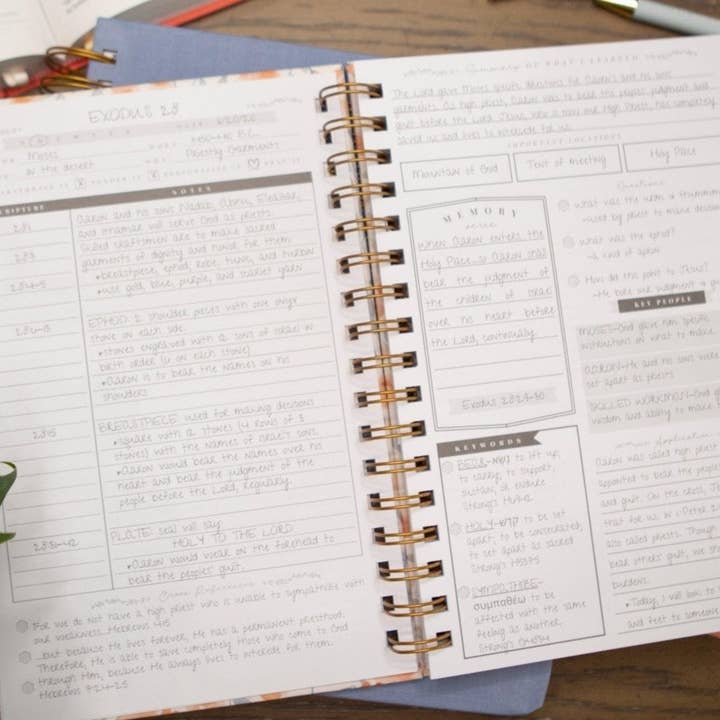 EXODUS 28
Moses
in the desert
Priestly Garments
SCRIPTURE
NOTES
28:1
Aaron and his sons Nadab, Abihu, Eleazar,
and Ithamar will serve God as priests.
28:3
Skilled craftsmen are to make sacred
garments of dignity and honor for them
28:4-5
• breastpiece, ephod, robe, tunic, and turban
• use gold, blue, purple, and scarlet yarn
EPHOD: 2 shoulder pieces with one onyx
stone on each side.
• stones engraved with 12 sons of Israel in
birth order (6 on each stone)
• Aaron is to bear the names on his
shoulders
28:15
BREASTPIECE: used for making decisions
• square with 12 stones (4 rows of 3
stones) with the names of Israel's sons
• Aaron would bear the names over his
heart and bear the judgment of the
people before the Lord, regularly.
PLATE: seal will say
HOLY TO THE LORD
• Aaron would wear on the forehead to
bear the people's guilt.
Cross References
For we do not have a high priest who is unable to sympathize with
our weakness... Hebrews 4:15
...but because He lives forever, He has a permanent priesthood.
Therefore, He is able to save completely those who come to God
through Him, because He always lives to intercede for them.
Hebrews 7:24-25
Summary OF WHAT I LEARNED
The Lord gave Moses specific directions for Aaron's and his sons'
garments. As high priest, Aaron was to bear the people's judgment and
guilt before the Lord. Jesus, who is now our High Priest, has completely
saved us and lives to intercede for us.
IMPORTANT LOCATIONS
Mountain of God
Tent of meeting
Holy Place
MEMORY
verse
When Aaron enters the
Holy Place... so Aaron shall
bear the judgment of
the children of Israel
over his heart before
the Lord, continually.
Exodus 28:29-30
Questions
What was the Urim & Thummim
-used by priest to make decisions
What was the ephod?
-a kind of apron
How did this point to Jesus?
-He bore our judgment &
KEY PEOPLE
MOSES-God gave him specific
instructions on what to make
AARON-He and his sons were
set apart as priests
SKILLED WORKMEN-God
wisdom and ability to make
KEYWORDS
BEAR- to lift up,
to carry, to support,
sustain, or endure
Strong's
HOLY- to be set
apart, to be consecrated,
to set apart as sacred
Strong's
SYMPATHIZE-
συμπαθέω to be
affected with the same
feeling as another,
Strong's
Application
Aaron was called high priest
appointed to bear the people's
and guilt. On the cross,
that for us. In 1 Peter 2
also called priests. Though
bear others' guilt, we
burdens.
• Today, I will look to
and feet to someone